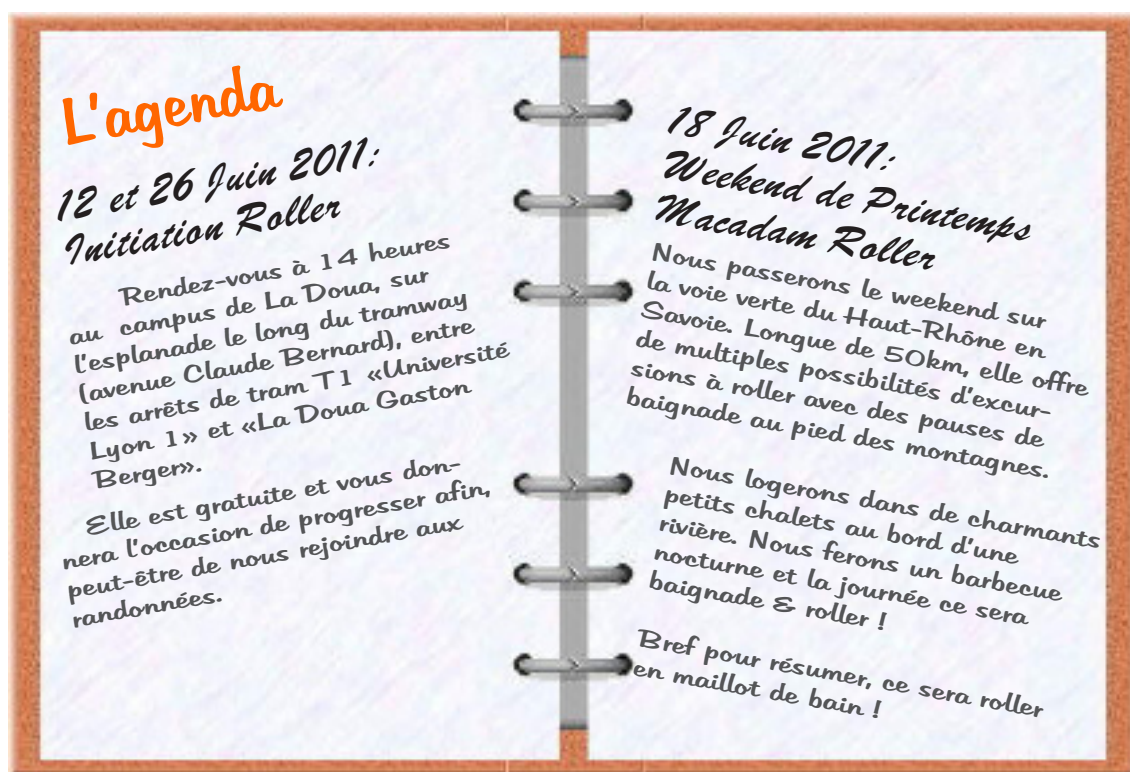 L'agenda
12 et 26 Juin 2011:
Initiation Roller
Rendez-vous à 14 heures
au campus de La Doua, sur
l'esplanade le long du tramway
(avenue Claude Bernard), entre
les arrêts de tram T1 «Université
Lyon 1» et «La Doua Gaston
Berger».
Elle est gratuite et vous don-
nera l'occasion de progresser afin,
peut-être de nous rejoindre aux
randonnées.
18 Juin 2011:
Weekend de Printemps
Macadam Roller
Nous passerons le weekend sur
la voie verte du Haut-Rhône en
Savoie. Longue de 50km, elle offre
de multiples possibilités d'excur-
sions à roller avec des pauses de
baignade au pied des montagnes.
Nous logerons dans de charmants
petits chalets au bord d'une
rivière. Nous ferons un barbecue
nocturne et la journée ce sera
baignade & roller !
Bref pour résumer, ce sera roller
en maillot de bain !